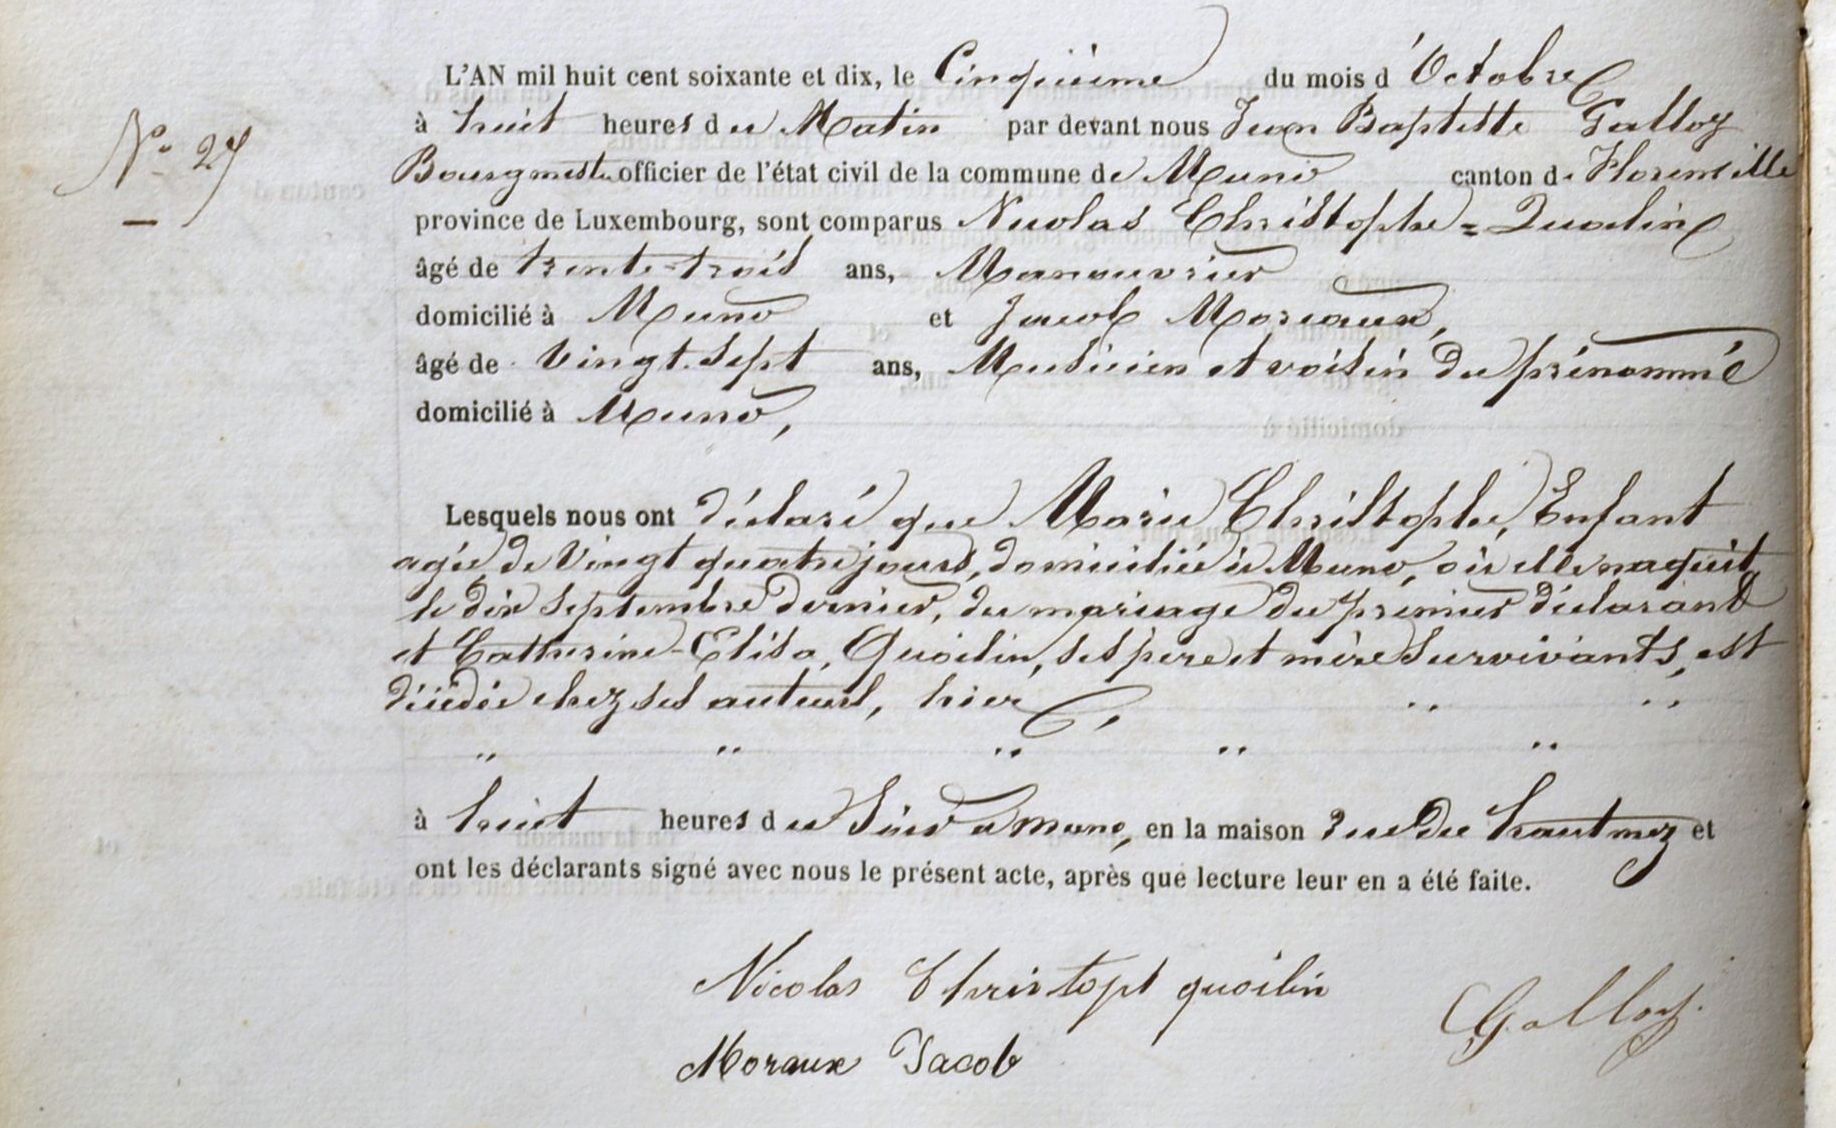 L'AN mil huit cent soixante et dix, le Cinquième du mois d'Octobre
à huit heures du Matin par devant nous Jean Baptiste Galloy
N° 27
Bourgmestre officier de l'état civil de la commune de Muno canton de Florenville
province de Luxembourg, sont comparus Nicolas Christophe = Quoilin
âgé de trente-trois ans, Manouvrier
domicilié à Muno et Jacob Moreaux,
âgé de vingt-sept ans, Musicien et voisin du prénommé
domicilié à Muno,
Lesquels nous ont déclaré que Marie Christophe, Enfant
agée de Vingt quatre jours, domiciliée à Muno, où elle naquit
le dix Septembre dernier, du mariage du premier déclarant
et Catherine-Elisa, Quoilin, ses père et mère Survivants, est
décédée chez ses auteurs, hier,
à huit heures du Soir à Muno, en la maison rue du hautmez et
ont les déclarants signé avec nous le présent acte, après que lecture leur en a été faite.
Nicolas Christoph quoilin
Galloy.
Moraux Jacob